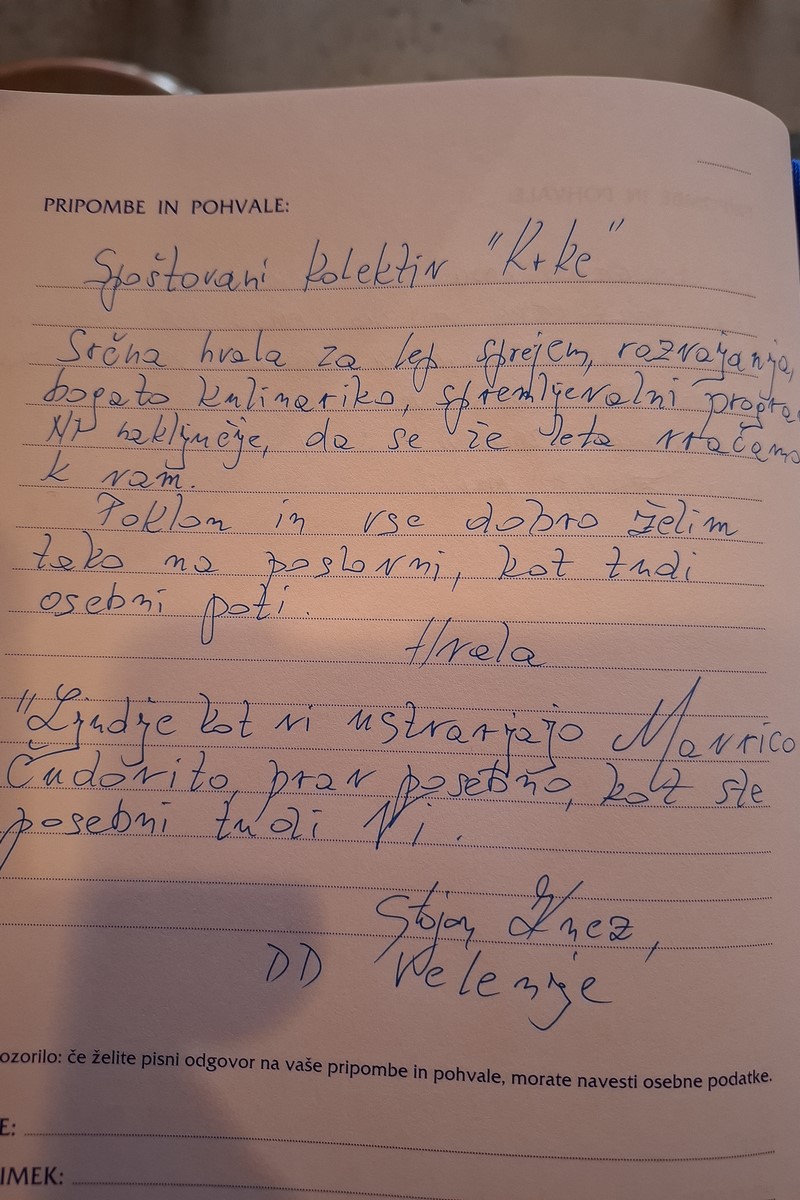 PRIPOMBE IN POHVALE:
Spoštovani kolektiv "Krke"
Srčna hvala za lep sprejem, razvajanja,
bogato kulinariko, spremljevalni progra
Ni naključje, da se že leta vračamo
k vam.
Poklon in vse dobro želim
tako na poslovni, kot tudi
osebni poti.
Hvala
"Ljudje kot vi ustvarjajo Mavrico
Čudovito, prav posebno, kot ste
posebni tudi Vi.
Stojan Knez,
DD Velenje
ozorilo: če želite pisni odgovor na vaše pripombe in pohvale, morate navesti osebne podatke.
E:
IMEK: